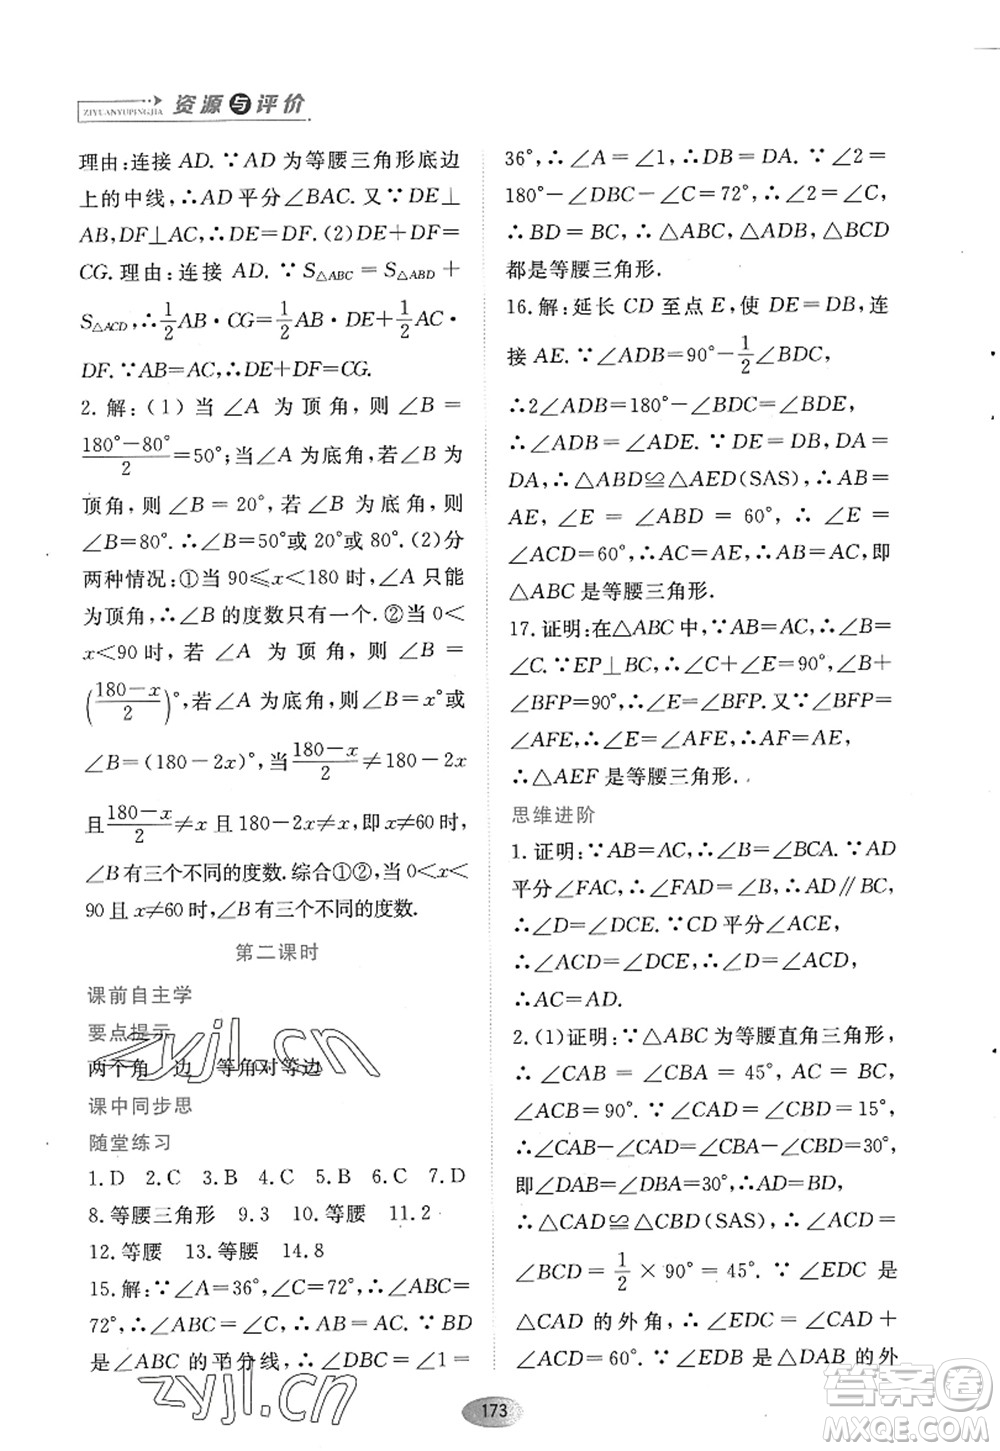 ZIYUANYUPINGJIA
资源与评价
理由:连接 AD. ∵ AD 为等腰三角形底边
上的中线,∴AD 平分∠BAC. 又∵DE⊥
AB,DF⊥AC,∴DE=DF. (2)DE+DF=
CG. 理由:连接 AD. ∵ S△ABC = S△ABD +
S△ACD,∴1/2AB·CG=1/2AB·DE+1/2AC·
DF. ∵AB=AC,∴DE+DF=CG.
2. 解:(1) 当 ∠A 为 顶 角, 则 ∠B =
(180°-80°)/2=50°;当∠A为底角,若∠B为
顶角,则∠B=20°,若∠B为底角,则
∠B=80°. ∴∠B=50°或20°或80°. (2)分
两种情况:①当 90≤x<180 时,∠A 只能
为顶角,∴∠B 的度数只有一个. ②当 0<
x<90 时, 若 ∠A 为 顶 角, 则 ∠B =
((180-x)/2)°,若∠A为底角,∠B=x°或
∠B=(180-2x)°,当(180-x)/2≠180-2x
且(180-x)/2≠x 且 180-2x≠x,即 x≠60 时,
∠B 有三个不同的度数. 综合①②,当 0<x<
90 且 x≠60 时,∠B 有三个不同的度数.
第二课时
课前自主学
要点提示
两个角 边 等角对等边
课中同步思
随堂练习
1. D 2. C 3. D 4. C 5. C 6. C 7. D
8. 等腰三角形 9. 3 10. 等腰 11. 2
12. 等腰 13. 等腰 14. 8
15. 解:∵∠A=36°,∠C=72°,∴∠ABC=
72°,∴∠ABC = ∠C,∴ AB = AC. ∵ BD
是∠ABC 的平分线,∴∠DBC=∠1=
36°,∴∠A=∠1,∴DB=DA. ∵∠2=
180°-∠DBC-∠C=72°,∴∠2=∠C,
∴ BD = BC, ∴ △ABC, △ABD, △BCD
都是等腰三角形.
16. 解:延长 CD 至点 E,使 DE=DB,连
接 AE. ∵∠ADB=90°-1/2∠BDC,
∴2∠ADB=180°-∠BDC=∠BDE,
∴∠ADB=∠ADE. ∵DE=DB,DA=
DA,∴△ABD≌△AED(SAS),∴AB=
AE, ∠E = ∠ABD = 60°, ∴ ∠E =
∠ACD=60°,∴AC=AE,∴AB=AC,即
△ABC 是等腰三角形.
17. 证明:在△ABC 中,∵AB=AC,∴∠B=
∠C. ∵EP⊥BC,∴∠C+∠E=90°,∠B+
∠BFP=90°,∴∠E=∠BFP. 又∵∠BFP=
∠AFE,∴∠E=∠AFE,∴AF=AE,
∴△AEF 是等腰三角形.
思维进阶
1. 证明:∵AB=AC,∴∠B=∠BCA. ∵AD
平分∠FAC,∴∠FAD=∠CAD. ∵∠FAC=
∠B+∠ACB,∴∠FAD=∠B,∴AD∥BC,
∴∠D=∠DCE. ∵CD 平分∠ACE,
∴∠ACD=∠DCE,∴∠D=∠ACD,
∴AC=AD.
2. (1)证明:∵△ABC 为等腰直角三角形,
∴ ∠CAB = ∠CBA = 45°, AC = BC,
∠ACB=90°. ∵∠CAD=∠CBD=15°,
∴∠CAB-∠CAD=∠CBA-∠CBD=30°,
即∠DAB=∠DBA=30°,∴AD=BD,
∴△CAD≌△CBD(SAS),∴∠ACD=
∠BCD = 1/2 × 90° = 45°. ∵ ∠EDC 是
△CAD 的外角,∴∠EDC=∠CAD+
∠ACD=60°. ∵∠EDB 是△DAB 的外
zyjl.cn
zyjl.cn
答案卷
MXQE.COM
173